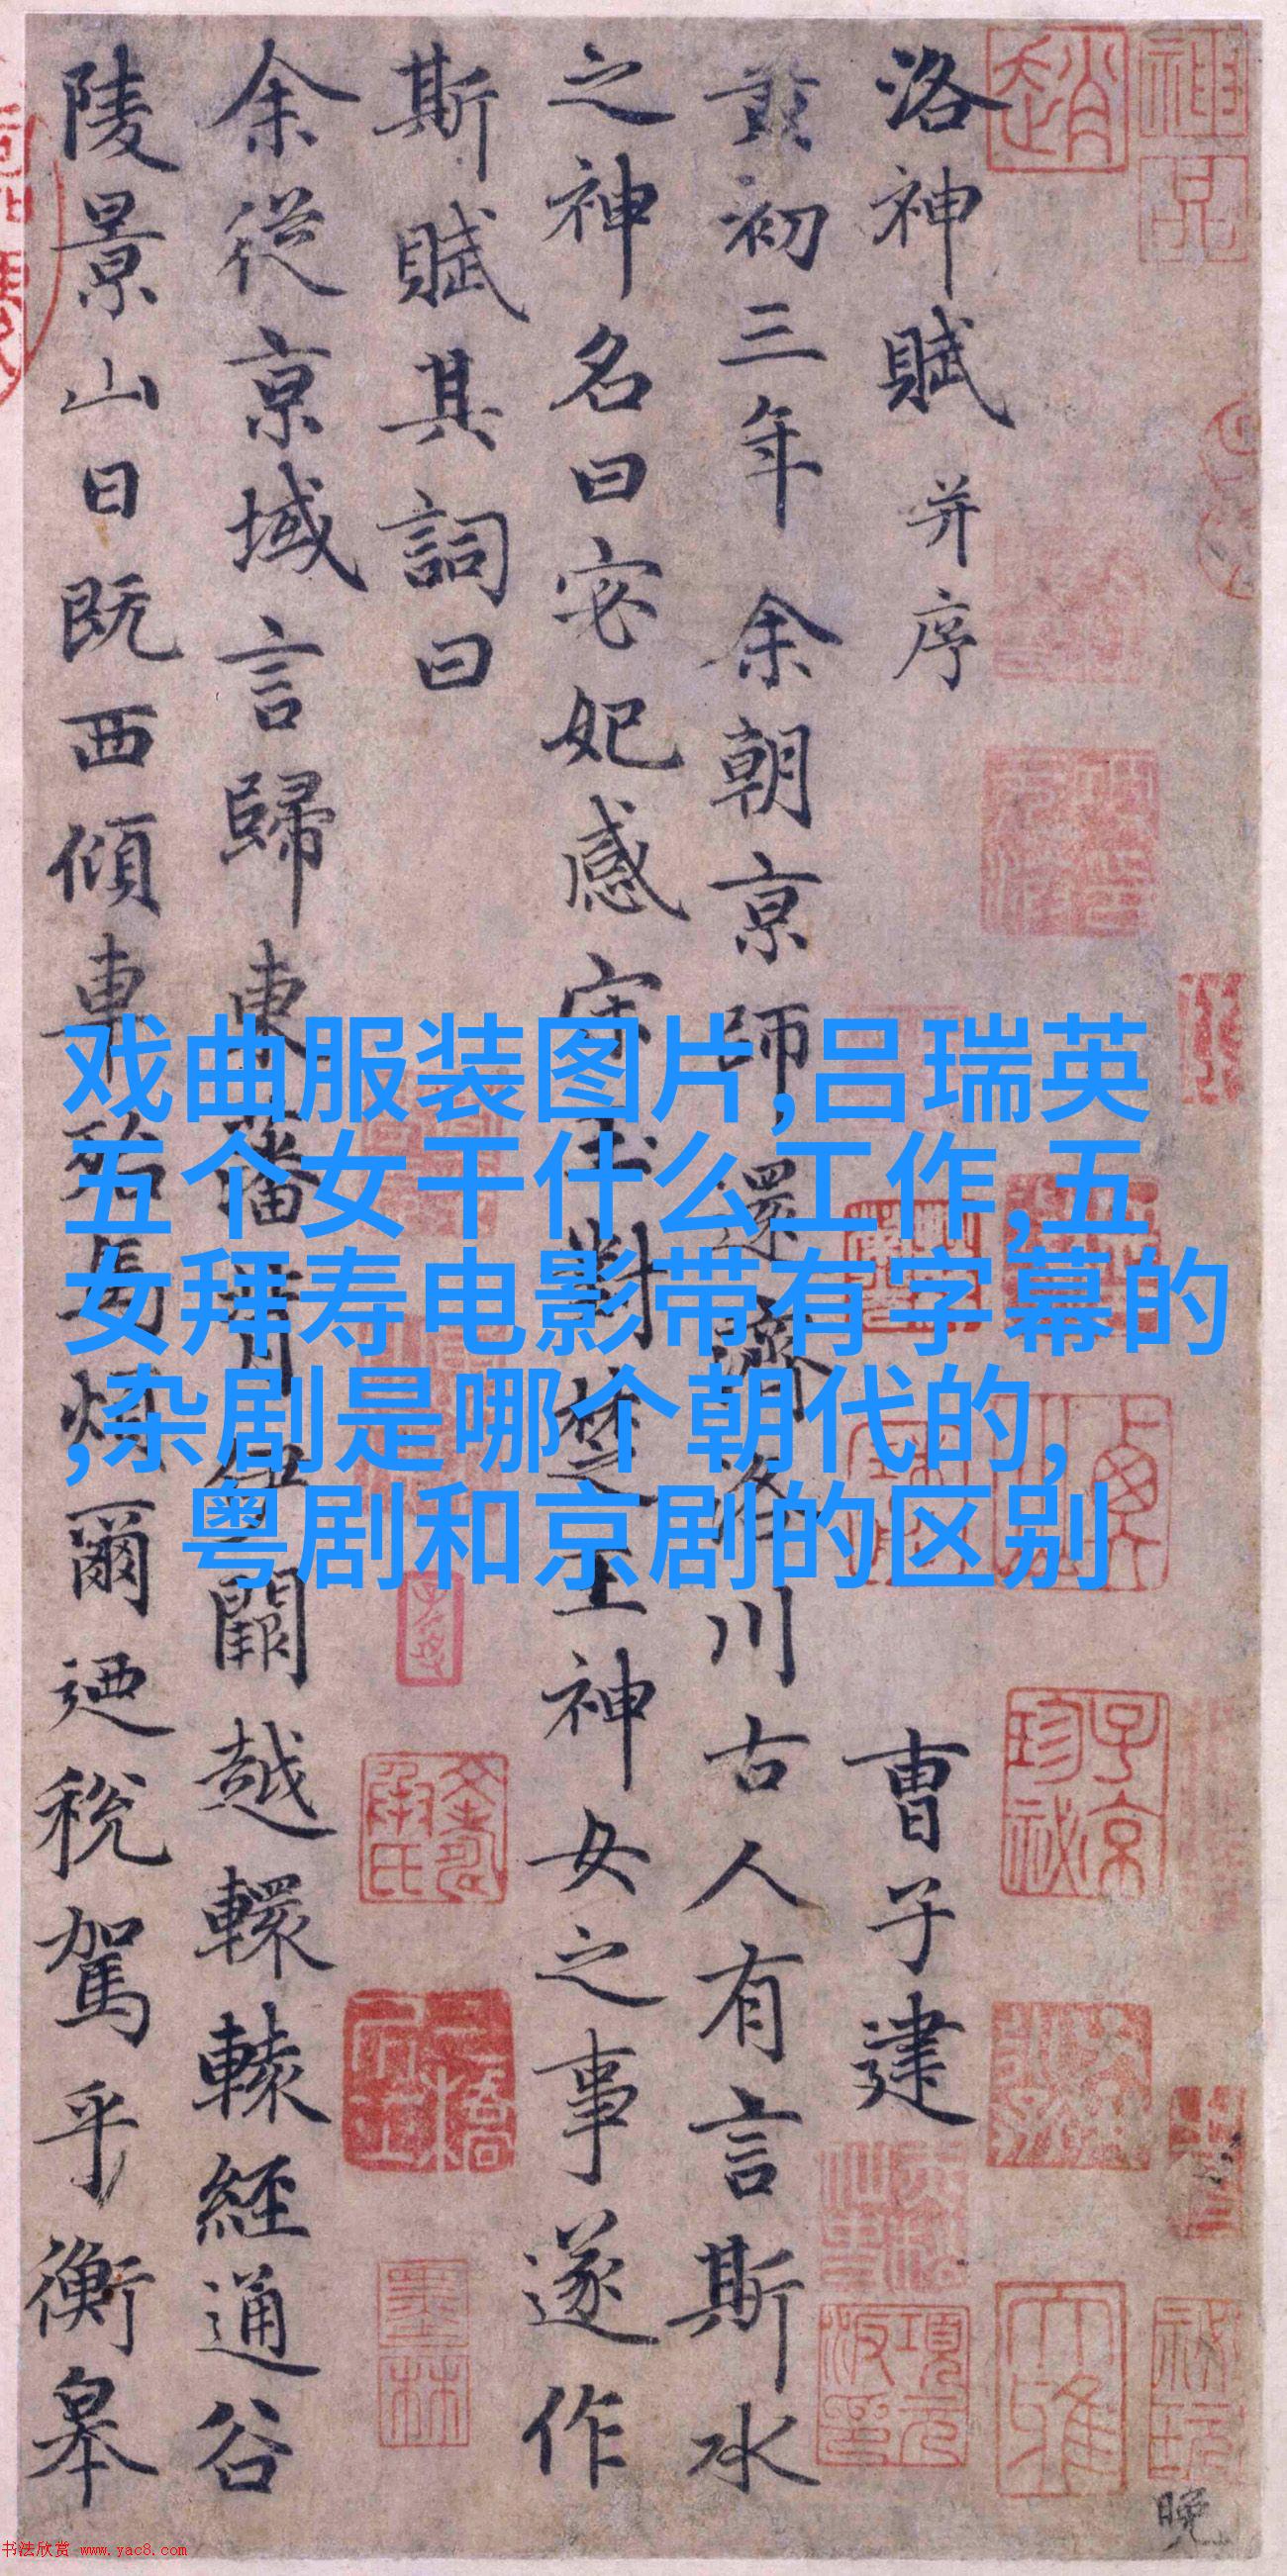 洛神賦 并序
曹子建
黄初三年余朝京師還濟洛川古人有言斯水
之神名曰宓妃感宋玉對楚王神女之事遂作
斯賦其詞曰
余從京域言歸東藩背伊闕越轘轅經通谷
陵景山日既西傾車殆馬煩爾迺稅駕乎衡皋
戏曲服装图片,吕瑞英
五个女干什么工作,五
女拜寿电影带有字幕的
,杂剧是哪个朝代的,
粤剧和京剧的区别
趙
子京
珍祕
墨林
項元
晚
书法欣赏 www.yac8.com